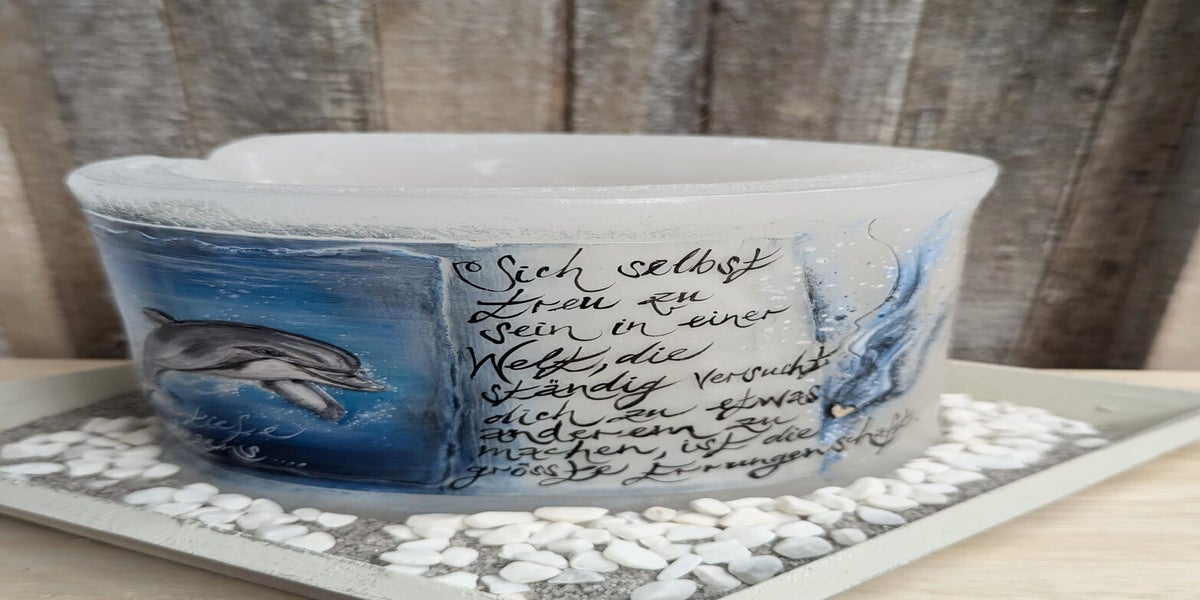 Sich selbst
treu zu
sein in einer
Welt, die
ständig versucht
dich zu etwas
anderem zu
machen, ist die
grösste Errungenschaft.
tiefe
....